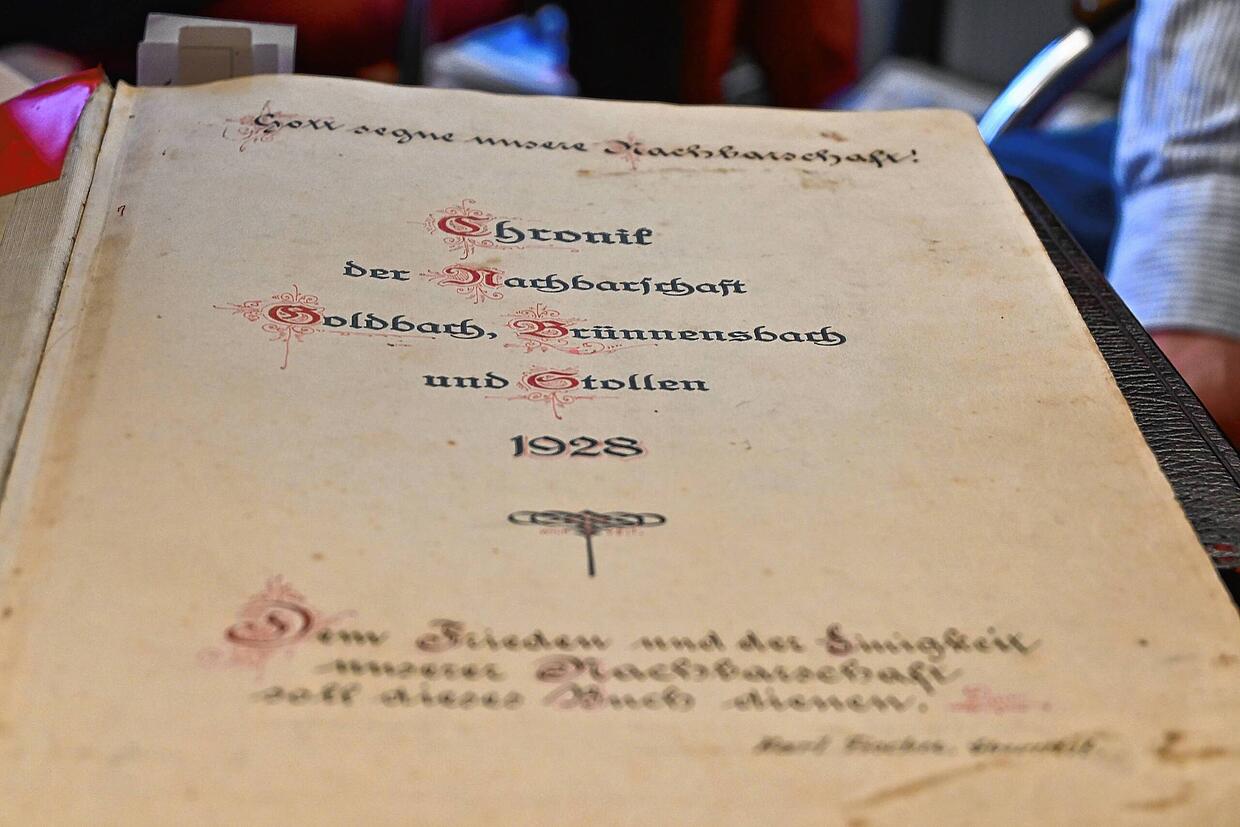 Gott segne unsere Nachbarschaft!
Chronik
der Nachbarſchaft
Goldbach, Brünnensbach
und Stollen
1928
Dem Frieden und der Einigkeit
unserer Nachbarschaft
soll dieses Buch dienen.
Karl